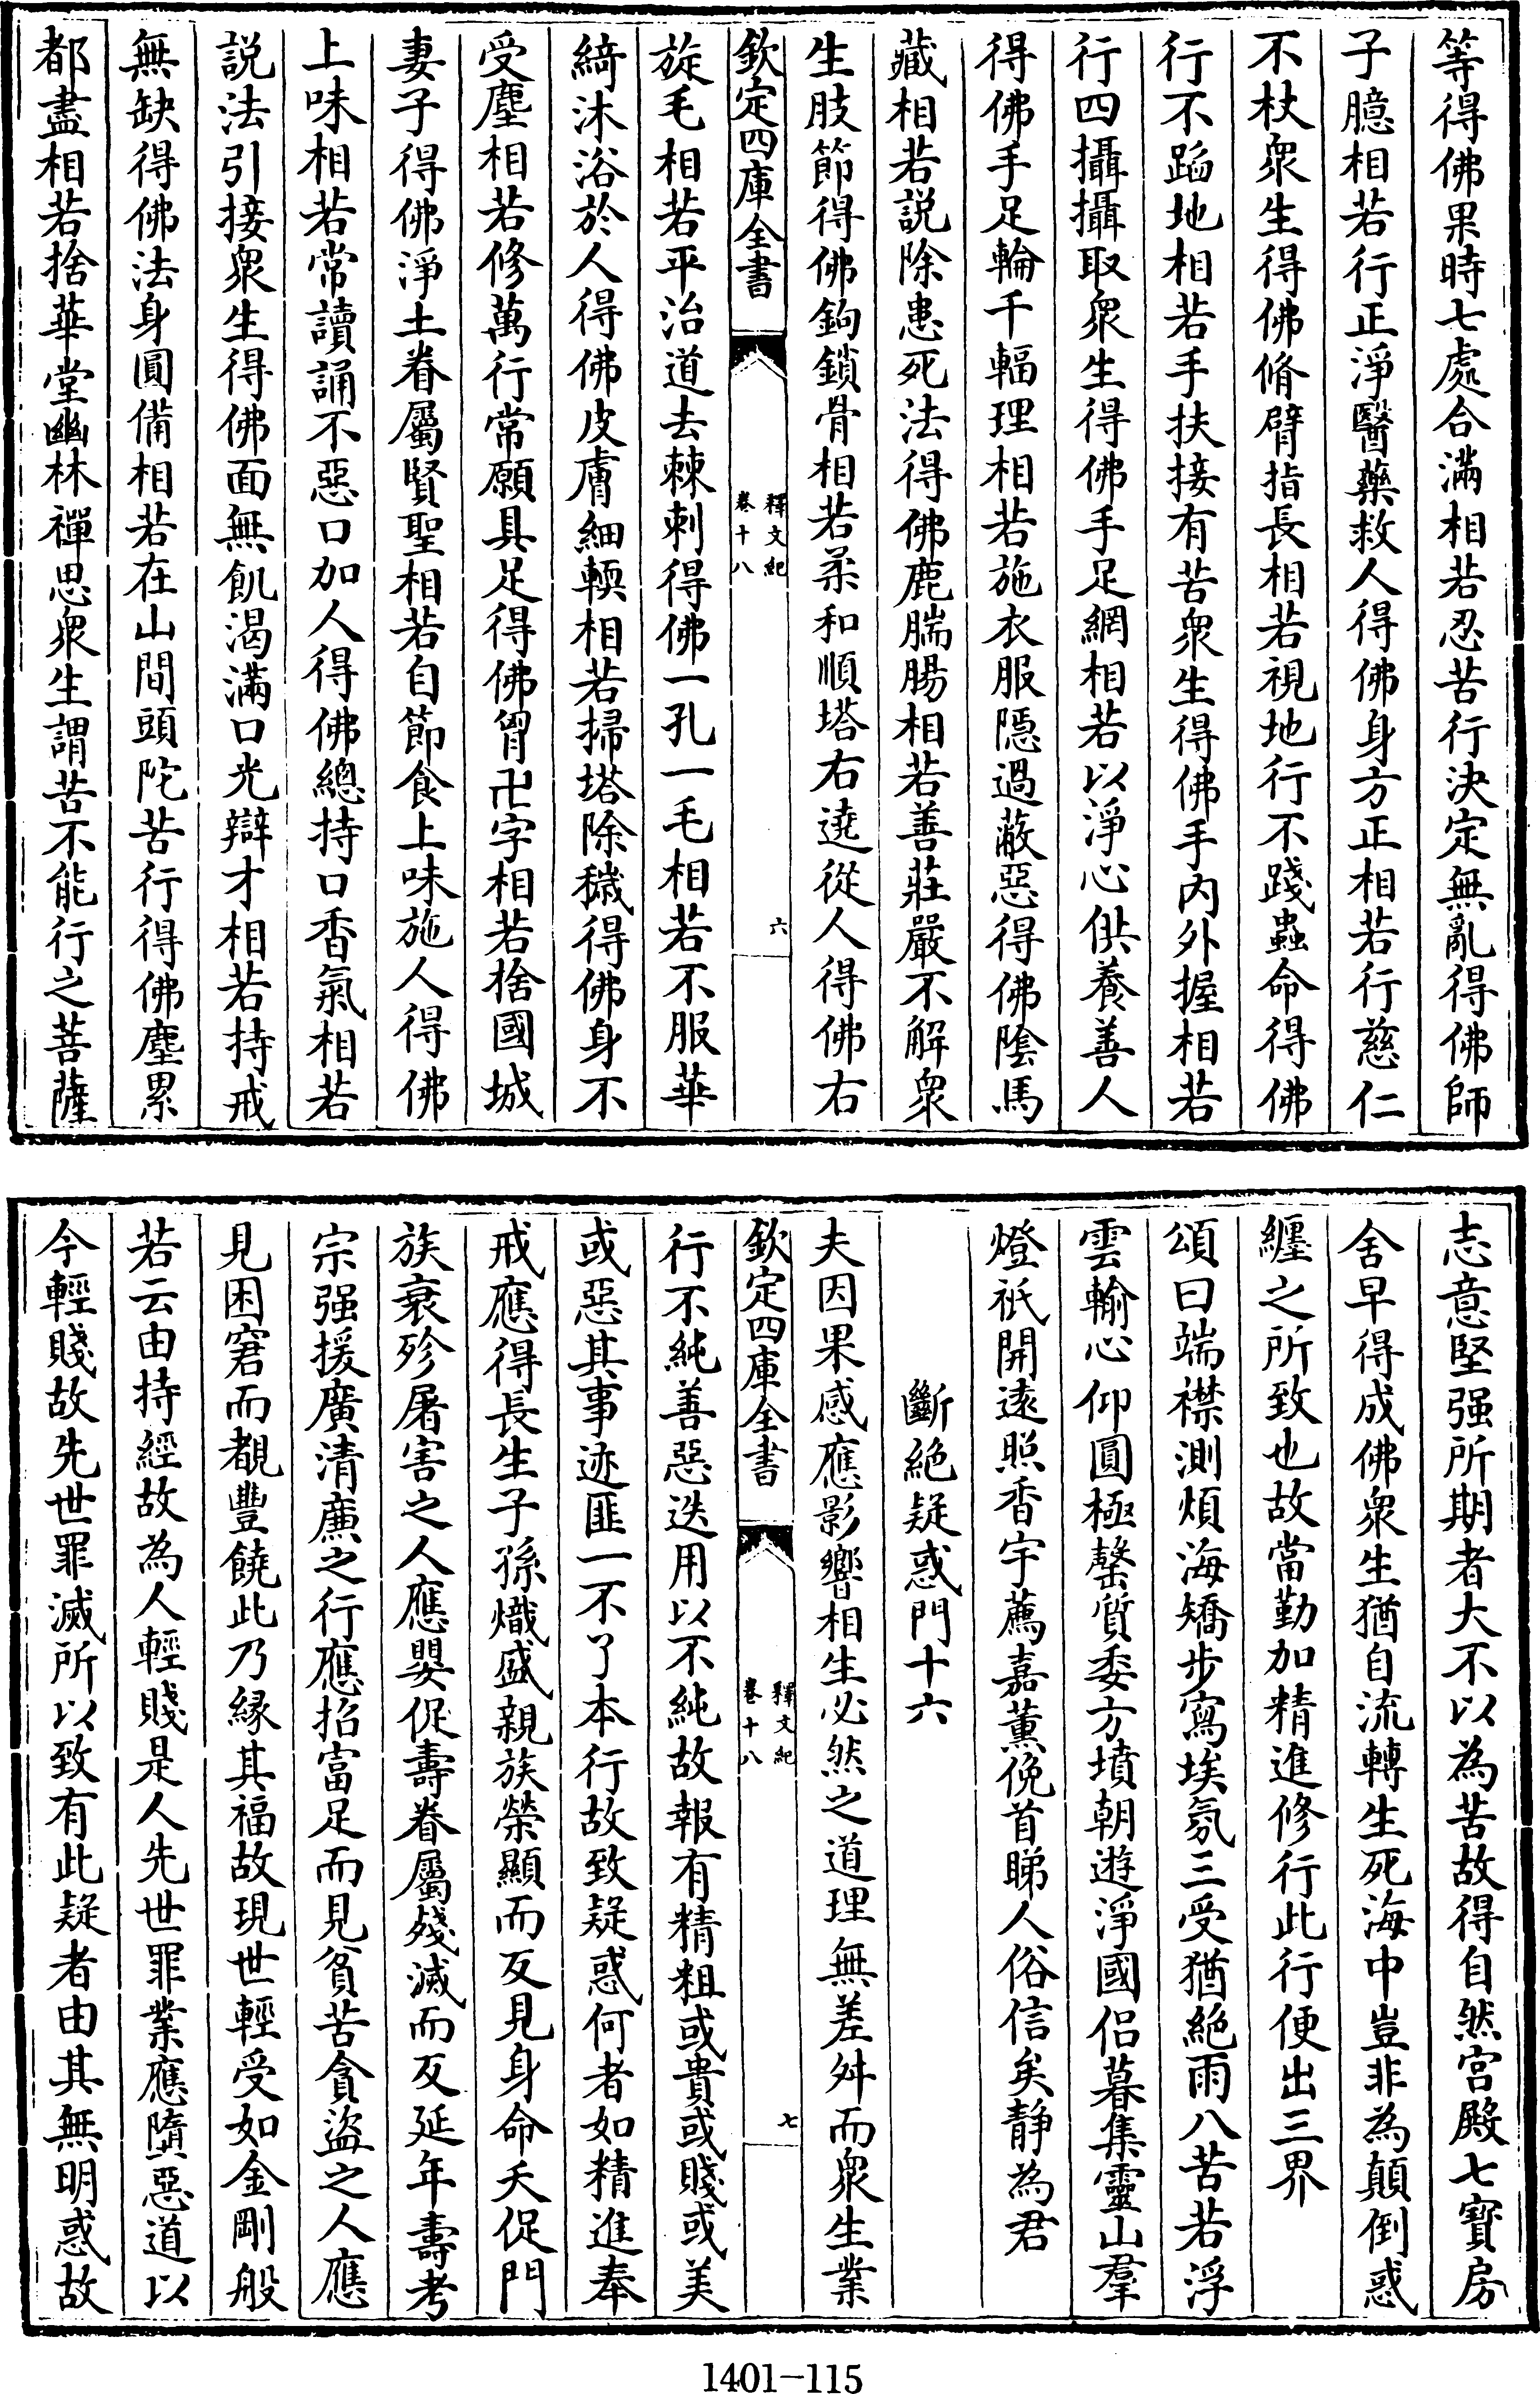 等得佛果時七處合滿相若忍苦行決定無亂得佛師
子臆相若行正淨醫藥救人得佛身方正相若行慈仁
不杖衆生得佛脩臂指長相若視地行不踐蟲命得佛
行不蹈地相若手扶接有苦衆生得佛手内外握相若
行四攝攝取衆生得佛手足網相若以淨心供養善人
得佛手足輪千輻理相若施衣服隱過蔽惡得佛陰馬
藏相若説除患死法得佛鹿腨腸相若善莊嚴不解衆
生肢節得佛鉤鎖骨相若柔和順塔右遶從人得佛右
欽定四庫全書
釋文紀
卷十八
六
旋毛相若平治道去棘刺得佛一孔一毛相若不服華
綺沐浴於人得佛皮膚細輭相若掃塔除穢得佛身不
受塵相若修萬行常願具足得佛胷卍字相若捨國城
妻子得佛淨土眷屬賢聖相若自節食上味施人得佛
上味相若常讀誦不惡口加人得佛總持口香氣相若
説法引接衆生得佛面無飢渴滿口光辯才相若持戒
無缺得佛法身圓備相若在山間頭陀苦行得佛塵累
都盡相若捨華堂幽林禪思衆生謂苦不能行之菩薩
志意堅强所期者大不以為苦故得自然宫殿七寳房
舍早得成佛衆生猶自流轉生死海中豈非為顛倒惑
纒之所致也故當勤加精進修行此行便出三界
頌曰端襟測煩海矯步寫埃氛三受猶絶雨八苦若浮
雲輸心仰圓極罄質委方墳朝遊淨國侣暮集靈山羣
燈祇開遠照香宇薦嘉薰俛首睇人俗信矣靜為君
斷絶疑惑門十六
夫因果感應影響相生必然之道理無差舛而衆生業
欽定四庫全書
釋文紀
卷十八
七
行不純善惡迭用以不純故報有精粗或貴或賤或美
或惡其事迹匪一不了本行故致疑惑何者如精進奉
戒應得長生子孫熾盛親族榮顯而反見身命夭促門
族衰殄屠害之人應嬰促壽眷屬殘滅而反延年壽考
宗强援廣清亷之行應招富足而見貧苦貪盜之人應
見困窘而覩豐饒此乃緣其福故現世輕受如金剛般
若云由持經故為人輕賤是人先世罪業應墮惡道以
今輕賤故先世罪滅所以致有此疑者由其無明惑故
1401-115